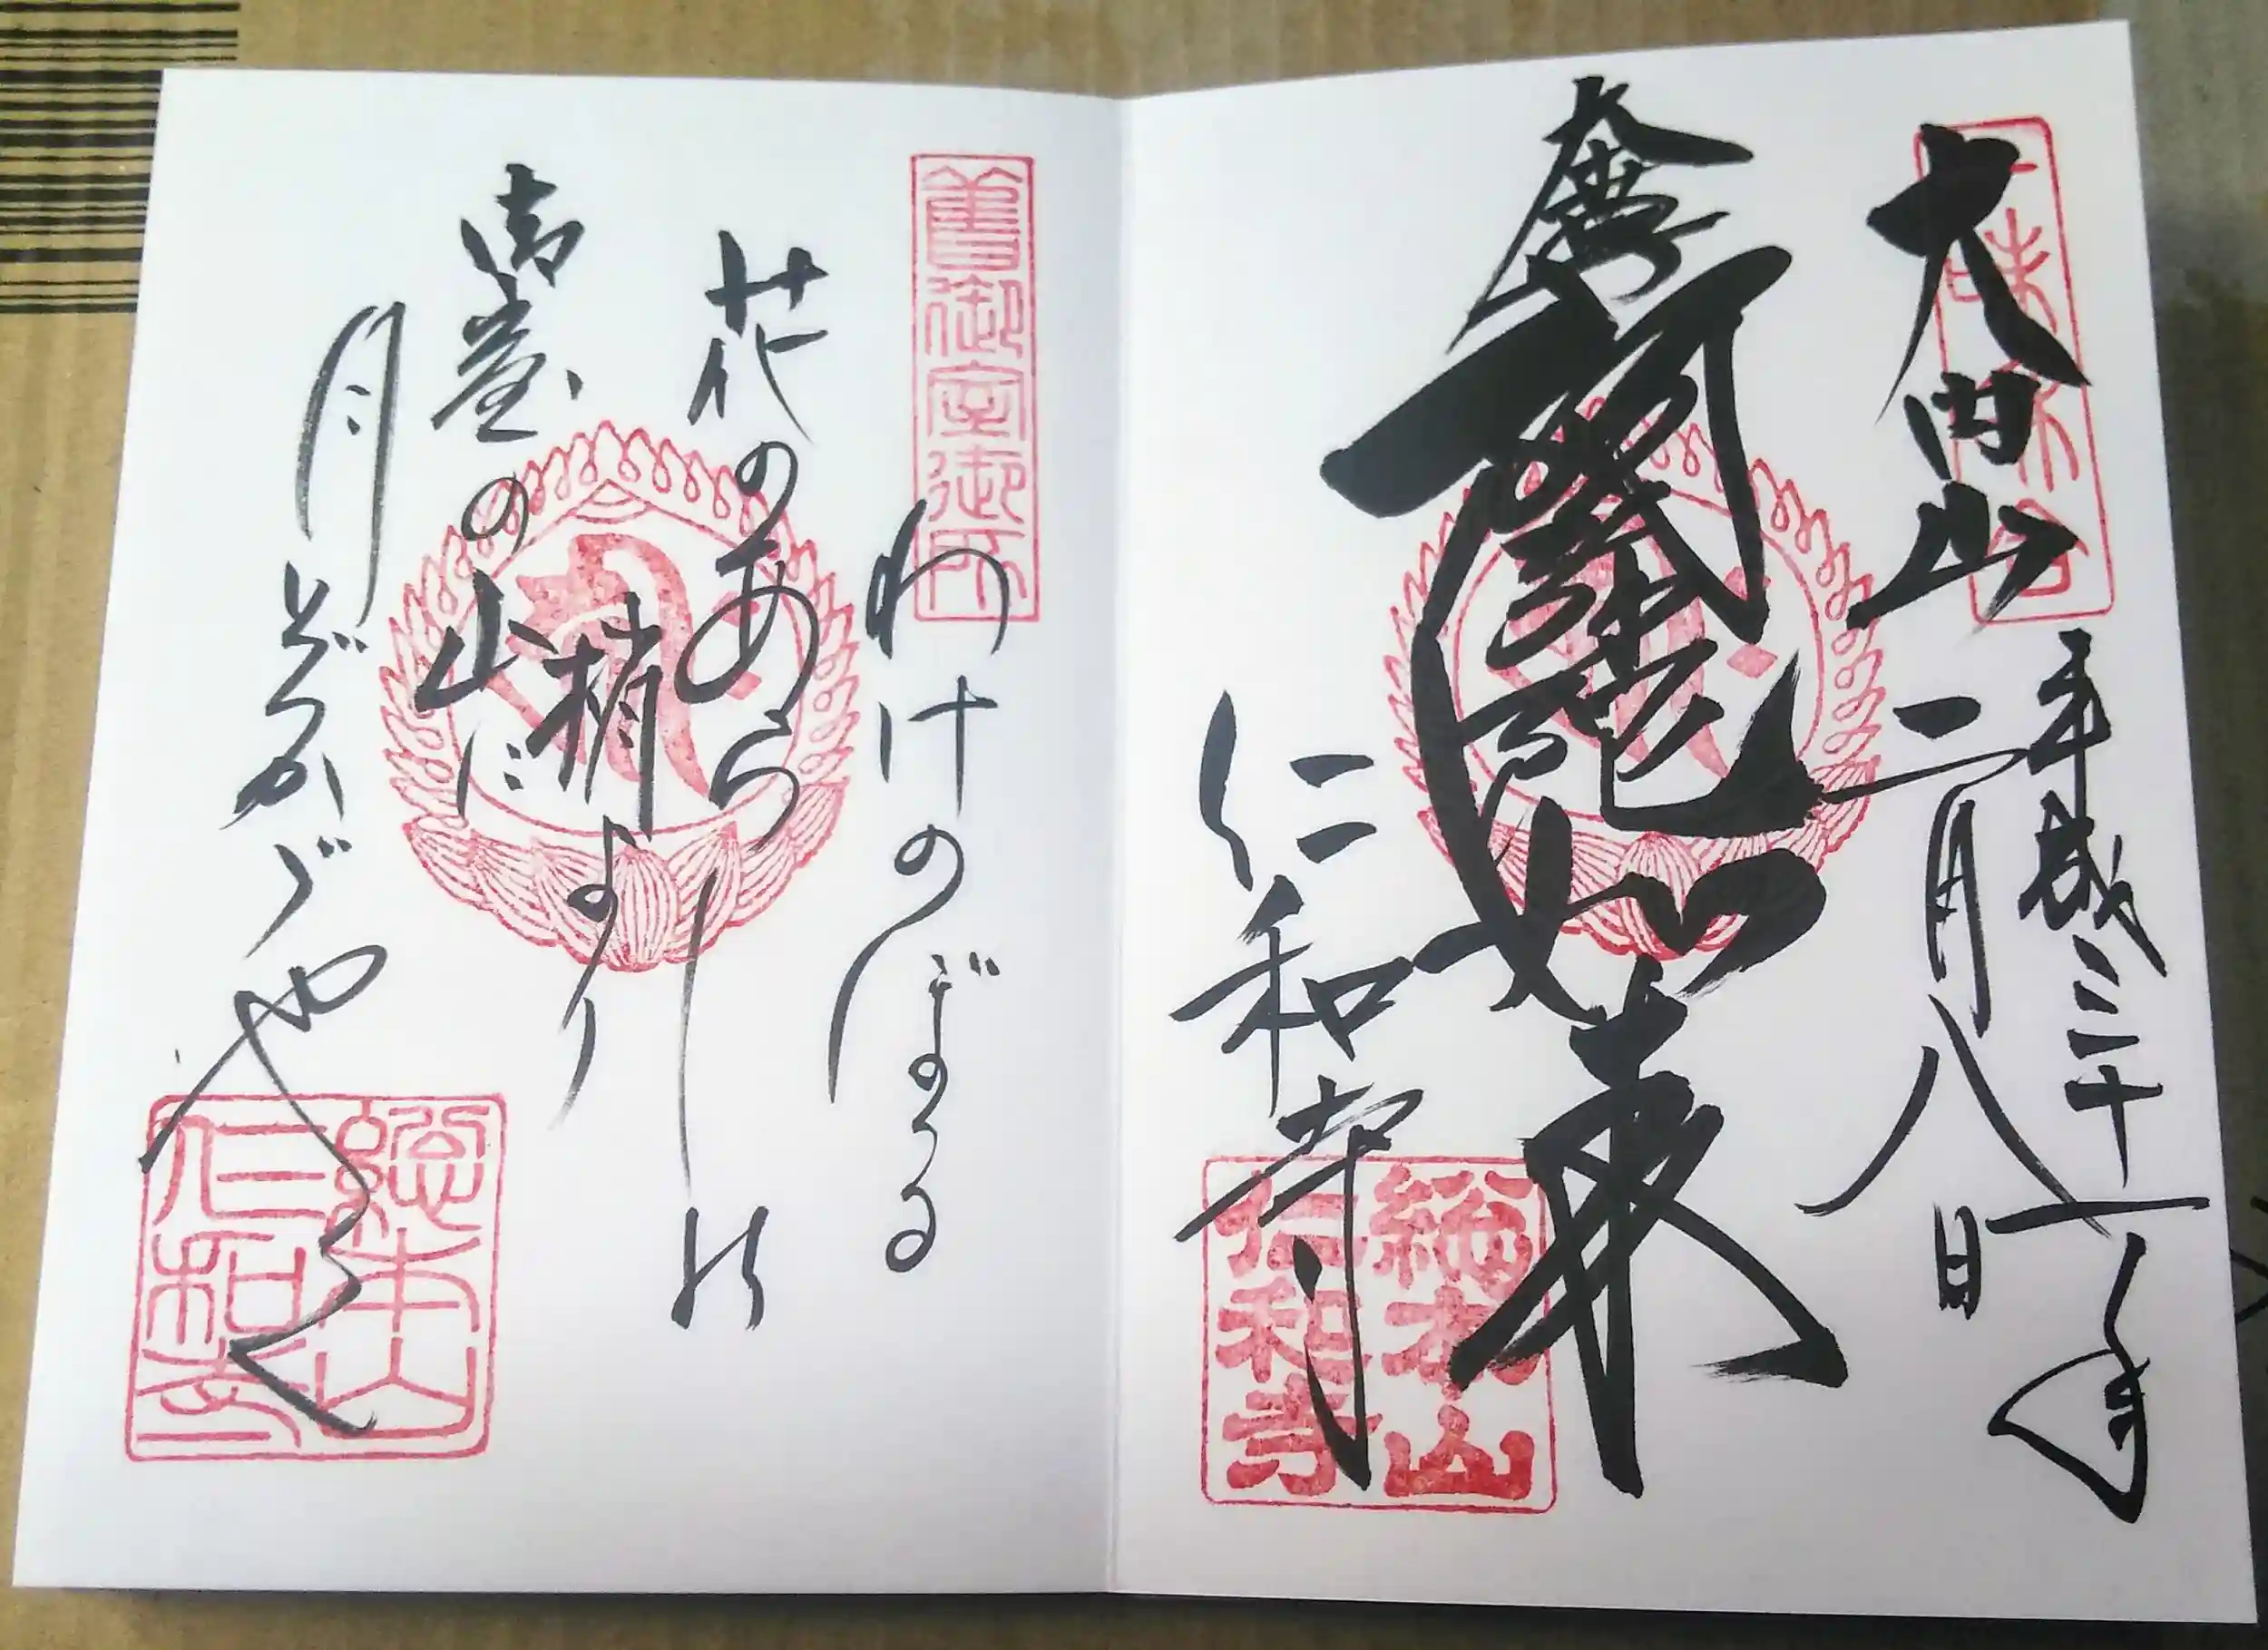 大内山
平成三十一年
二月八日
阿弥陀如来
仁和寺
一味和合
総本山
仁和寺
舊御室御所
わけのぼる
花のあらしの
梢より
御室の山に
月ぞかがやく
総本山
仁和寺